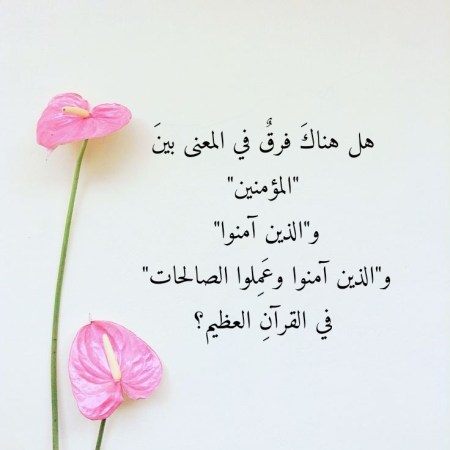 هل هناكَ فرقٌ في المعنى بينَ
"المؤمنين"
و"الذين آمنوا"
و"الذين آمنوا وعَمِلوا الصالحات"
في القرآنِ العظيم؟